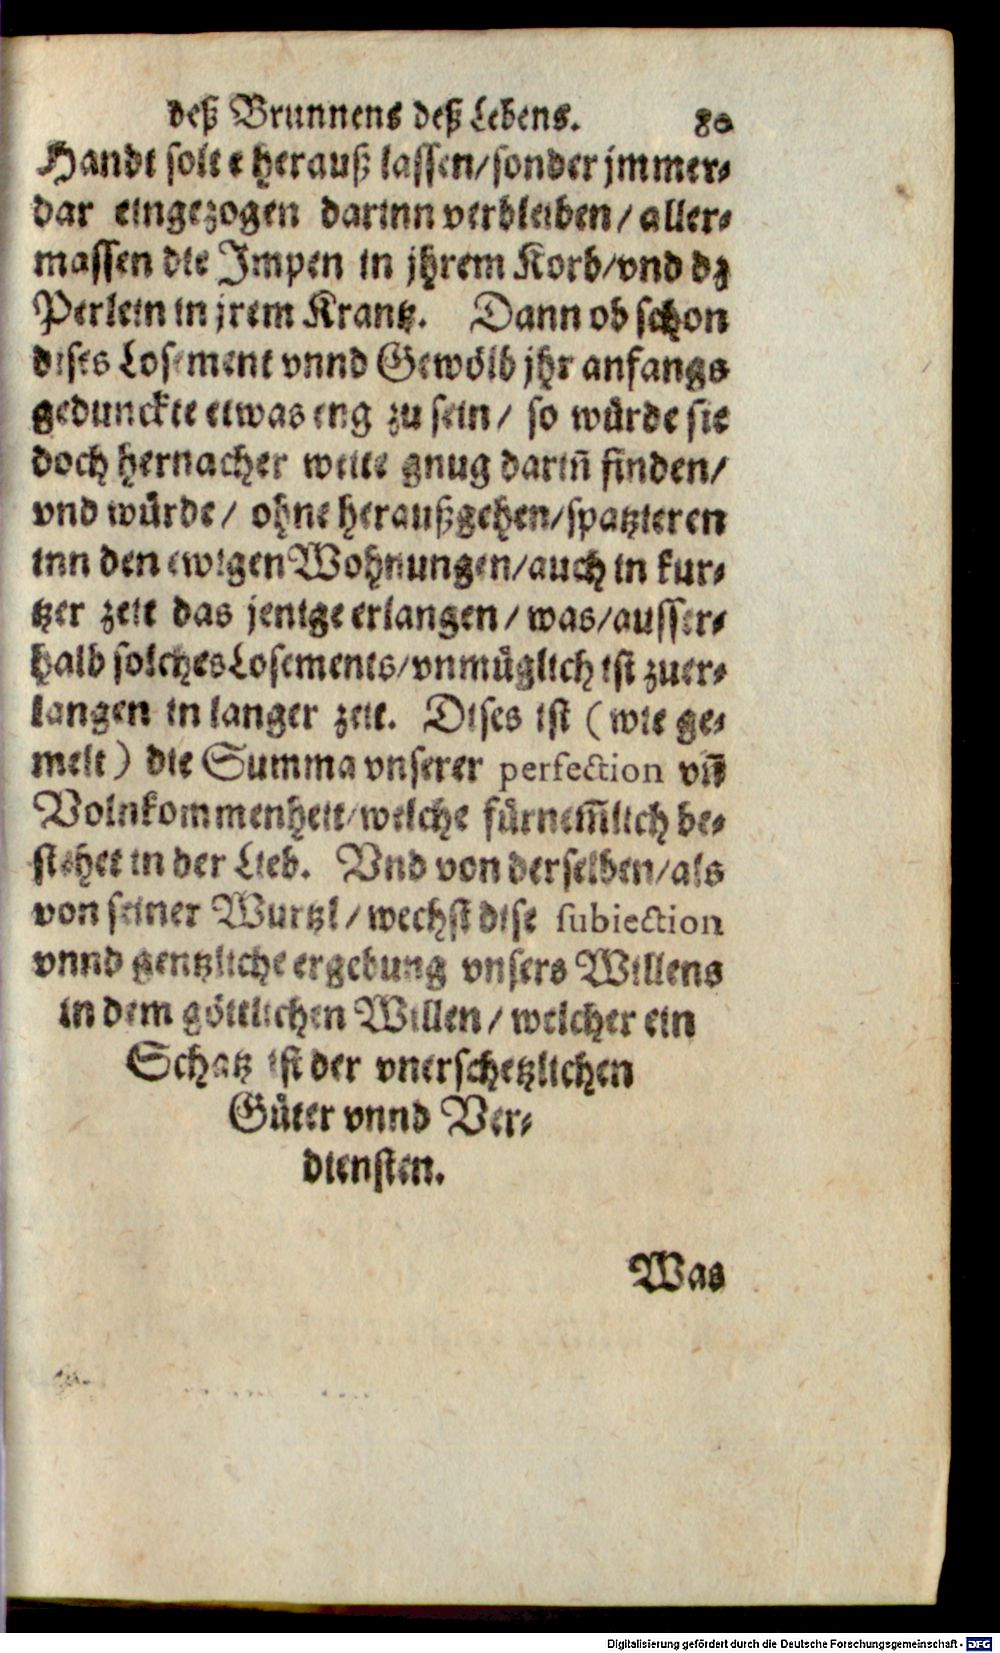 deß Brunnens deß Lebens. 80
Handt solte herauß lassen/sonder jmmer-
dar eingezogen darinn verbleiben/aller-
massen die Impen in jhrem Korb/vnd dz
Perlein in jrem Krantz. Dann ob schon
dises Losement vnnd Gewölb jhr anfangs
gedunckte etwas eng zu sein/ so würde sie
doch hernacher weite gnug dariñ finden/
vnd würde/ ohne heraußgehen/spatzieren
inn den ewigen Wohnungen/auch in kur-
tzer zeit das jenige erlangen/was/ausser-
halb solches Losements/vnmüglich ist zuer-
langen in langer zeit. Dises ist (wie ge-
melt) die Summa vnserer perfection vñ
Volnkommenheit/welche fürnem̃lich be-
stehet in der Lieb. Vnd von derselben/als
von seiner Wurtzl/wechst dise subiection
vnnd gentzliche ergebung vnsers Willens
in dem göttlichen Willen/welcher ein
Schatz ist der vnerschetzlichen
Güter vnnd Ver-
diensten.
Was
Digitalisierung gefördert durch die Deutsche Forschungsgemeinschaft - DFG